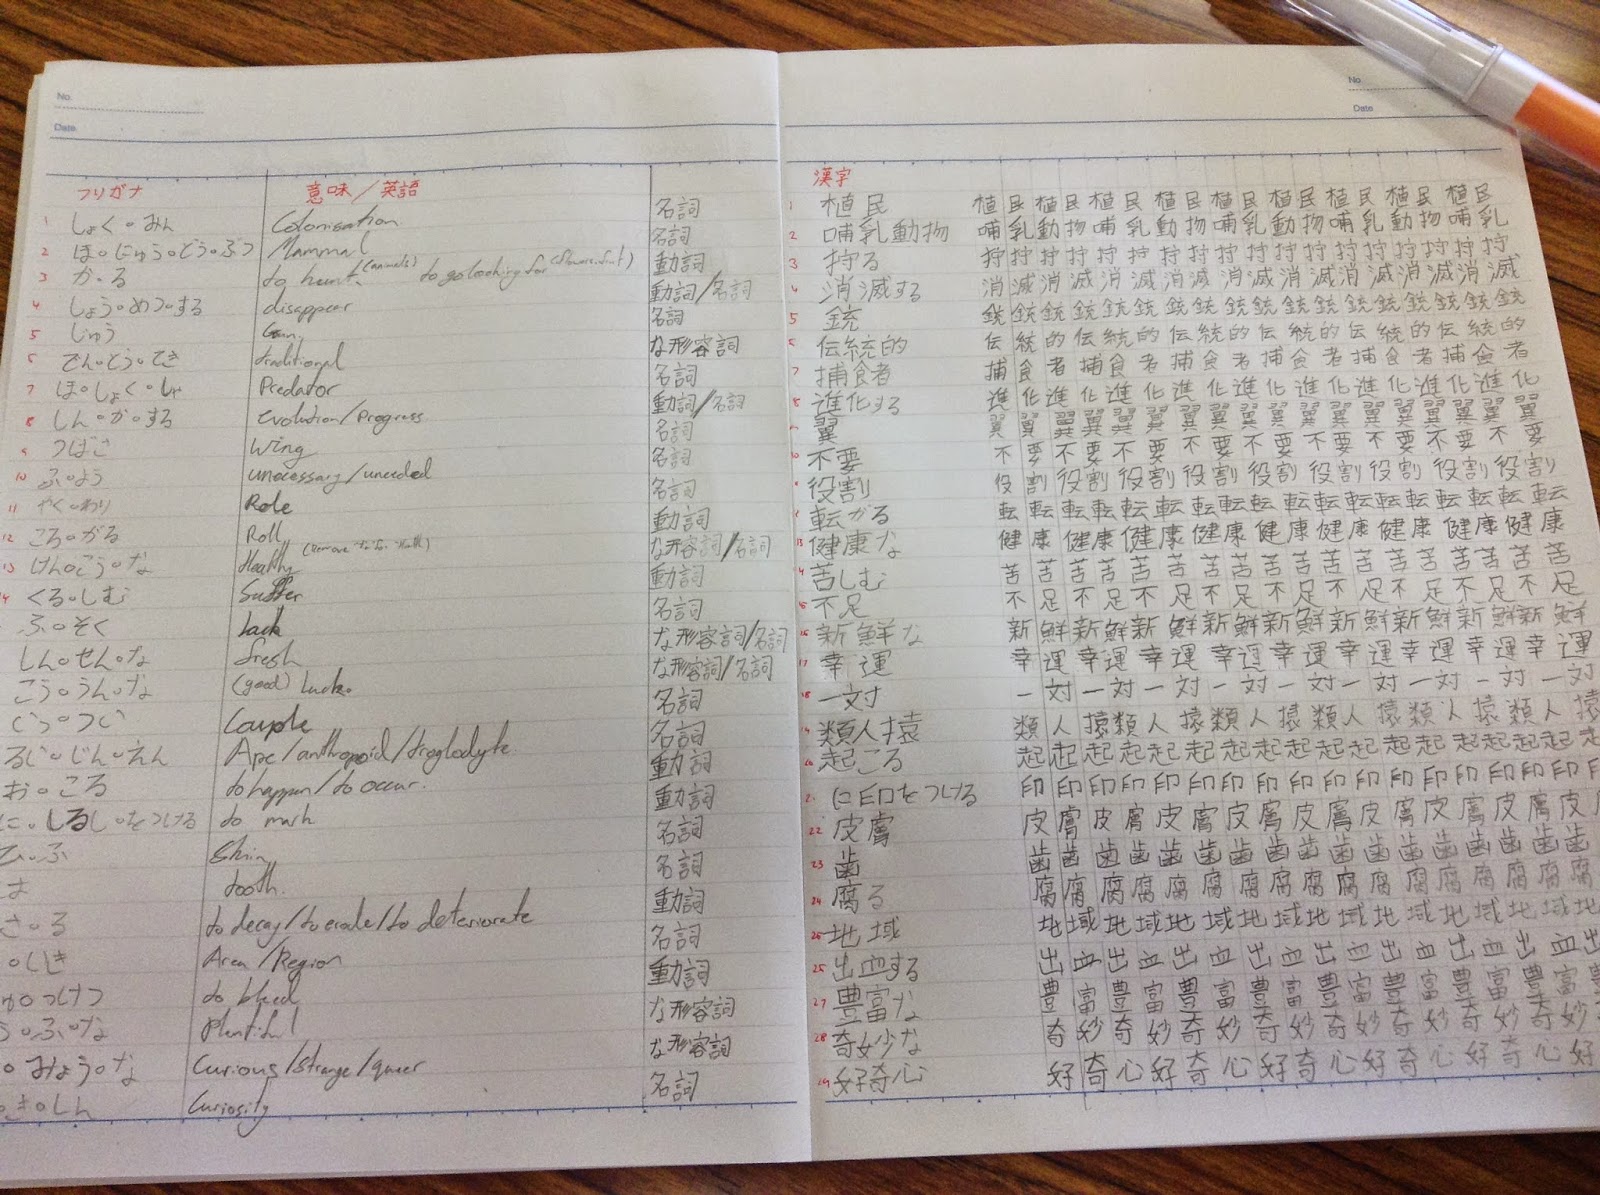 No.
Date
フリガナ 意味/英語
1 しょく・みん Colonisation 名詞
2 ほ・にゅう・どう・ぶつ Mammal 名詞
3 か・る to hunt (animals) to go looking for (flowers, fruit) 動詞
4 しょう・めつ・する disappear 動詞/名詞
5 じゅう Gun 名詞
6 でん・とう・てき traditional な形容詞
7 ほ・しょく・しゃ Predator 名詞
8 しん・か・する Evolution/Progress 動詞/名詞
9 つばさ Wing 名詞
10 ふ・よう unecessary/uneeded 名詞
11 やく・わり Role 名詞
12 ころ・がる Roll 動詞
13 けん・こう・な Healthy な形容詞/名詞
14 くる・しむ Suffer 動詞
ふ・そく Lack 名詞
しん・せん・な fresh な形容詞/名詞
こう・うん・な (good) luck. な形容詞/名詞
つい Couple 名詞
るい・じん・えん Ape/anthropoid/troglodyte 名詞
お・ころ to happen/to occur. 動詞
に・しるし・をつける to mark 動詞
ひ・ふ Skin 名詞
は tooth. 名詞
さ・る to decay/to erode/to deteriorate 動詞
・いき Area/Region 名詞
・つけつ to bleed 動詞
・ふ・な Plentiful な形容詞
・みょう・な Curious/strange/queer な形容詞
き・しん Curiosity 名詞
No.
Date
漢字
1 植民 植民植民植民植民植民植民植民植民植民
2 哺乳動物 哺乳動物哺乳動物哺乳動物哺乳動物哺乳
3 狩る 狩狩狩狩狩狩狩狩狩狩狩狩狩狩狩狩狩狩
4 消滅する 消滅消滅消滅消滅消滅消滅消滅消滅消滅
5 銃 銃銃銃銃銃銃銃銃銃銃銃銃銃銃銃銃銃銃
6 伝統的 伝統的伝統的伝統的伝統的伝統的伝統的
7 捕食者 捕食者捕食者捕食者捕食者捕食者捕食者
8 進化する 進化進化進化進化進化進化進化進化進化
翼 翼翼翼翼翼翼翼翼翼翼翼翼翼翼翼翼翼翼
不要 不要不要不要不要不要不要不要不要不要
役割 役割役割役割役割役割役割役割役割役割
転がる 転転転転転転転転転転転転転転転転転転
13 健康な 健康健康健康健康健康健康健康健康健康
苦しむ 苦苦苦苦苦苦苦苦苦苦苦苦苦苦苦苦苦
不足 不足不足不足不足不足不足不足不足不足
新鮮な 新鮮新鮮新鮮新鮮新鮮新鮮新鮮新鮮新鮮
17 幸運 幸運幸運幸運幸運幸運幸運幸運幸運幸運
18 一対 一対一対一対一対一対一対一対一対一対
類人猿 類人猿類人猿類人猿類人猿類人猿類人猿
起ころ 起起起起起起起起起起起起起起起起起起
に印をつける 印印印印印印印印印印印印印印印印印
22 皮膚 皮膚皮膚皮膚皮膚皮膚皮膚皮膚皮膚皮
23 歯 歯歯歯歯歯歯歯歯歯歯歯歯歯歯歯歯歯
24 腐る 腐腐腐腐腐腐腐腐腐腐腐腐腐腐腐腐腐
地域 地域地域地域地域地域地域地域地域地
出血する 出血出血出血出血出血出血出血出血出血
27 豊富な 豊富豊富豊富豊富豊富豊富豊富豊富豊
28 奇妙な 奇妙奇妙奇妙奇妙奇妙奇妙奇妙奇妙
29 好奇心 好奇心好奇心好奇心好奇心好奇心好